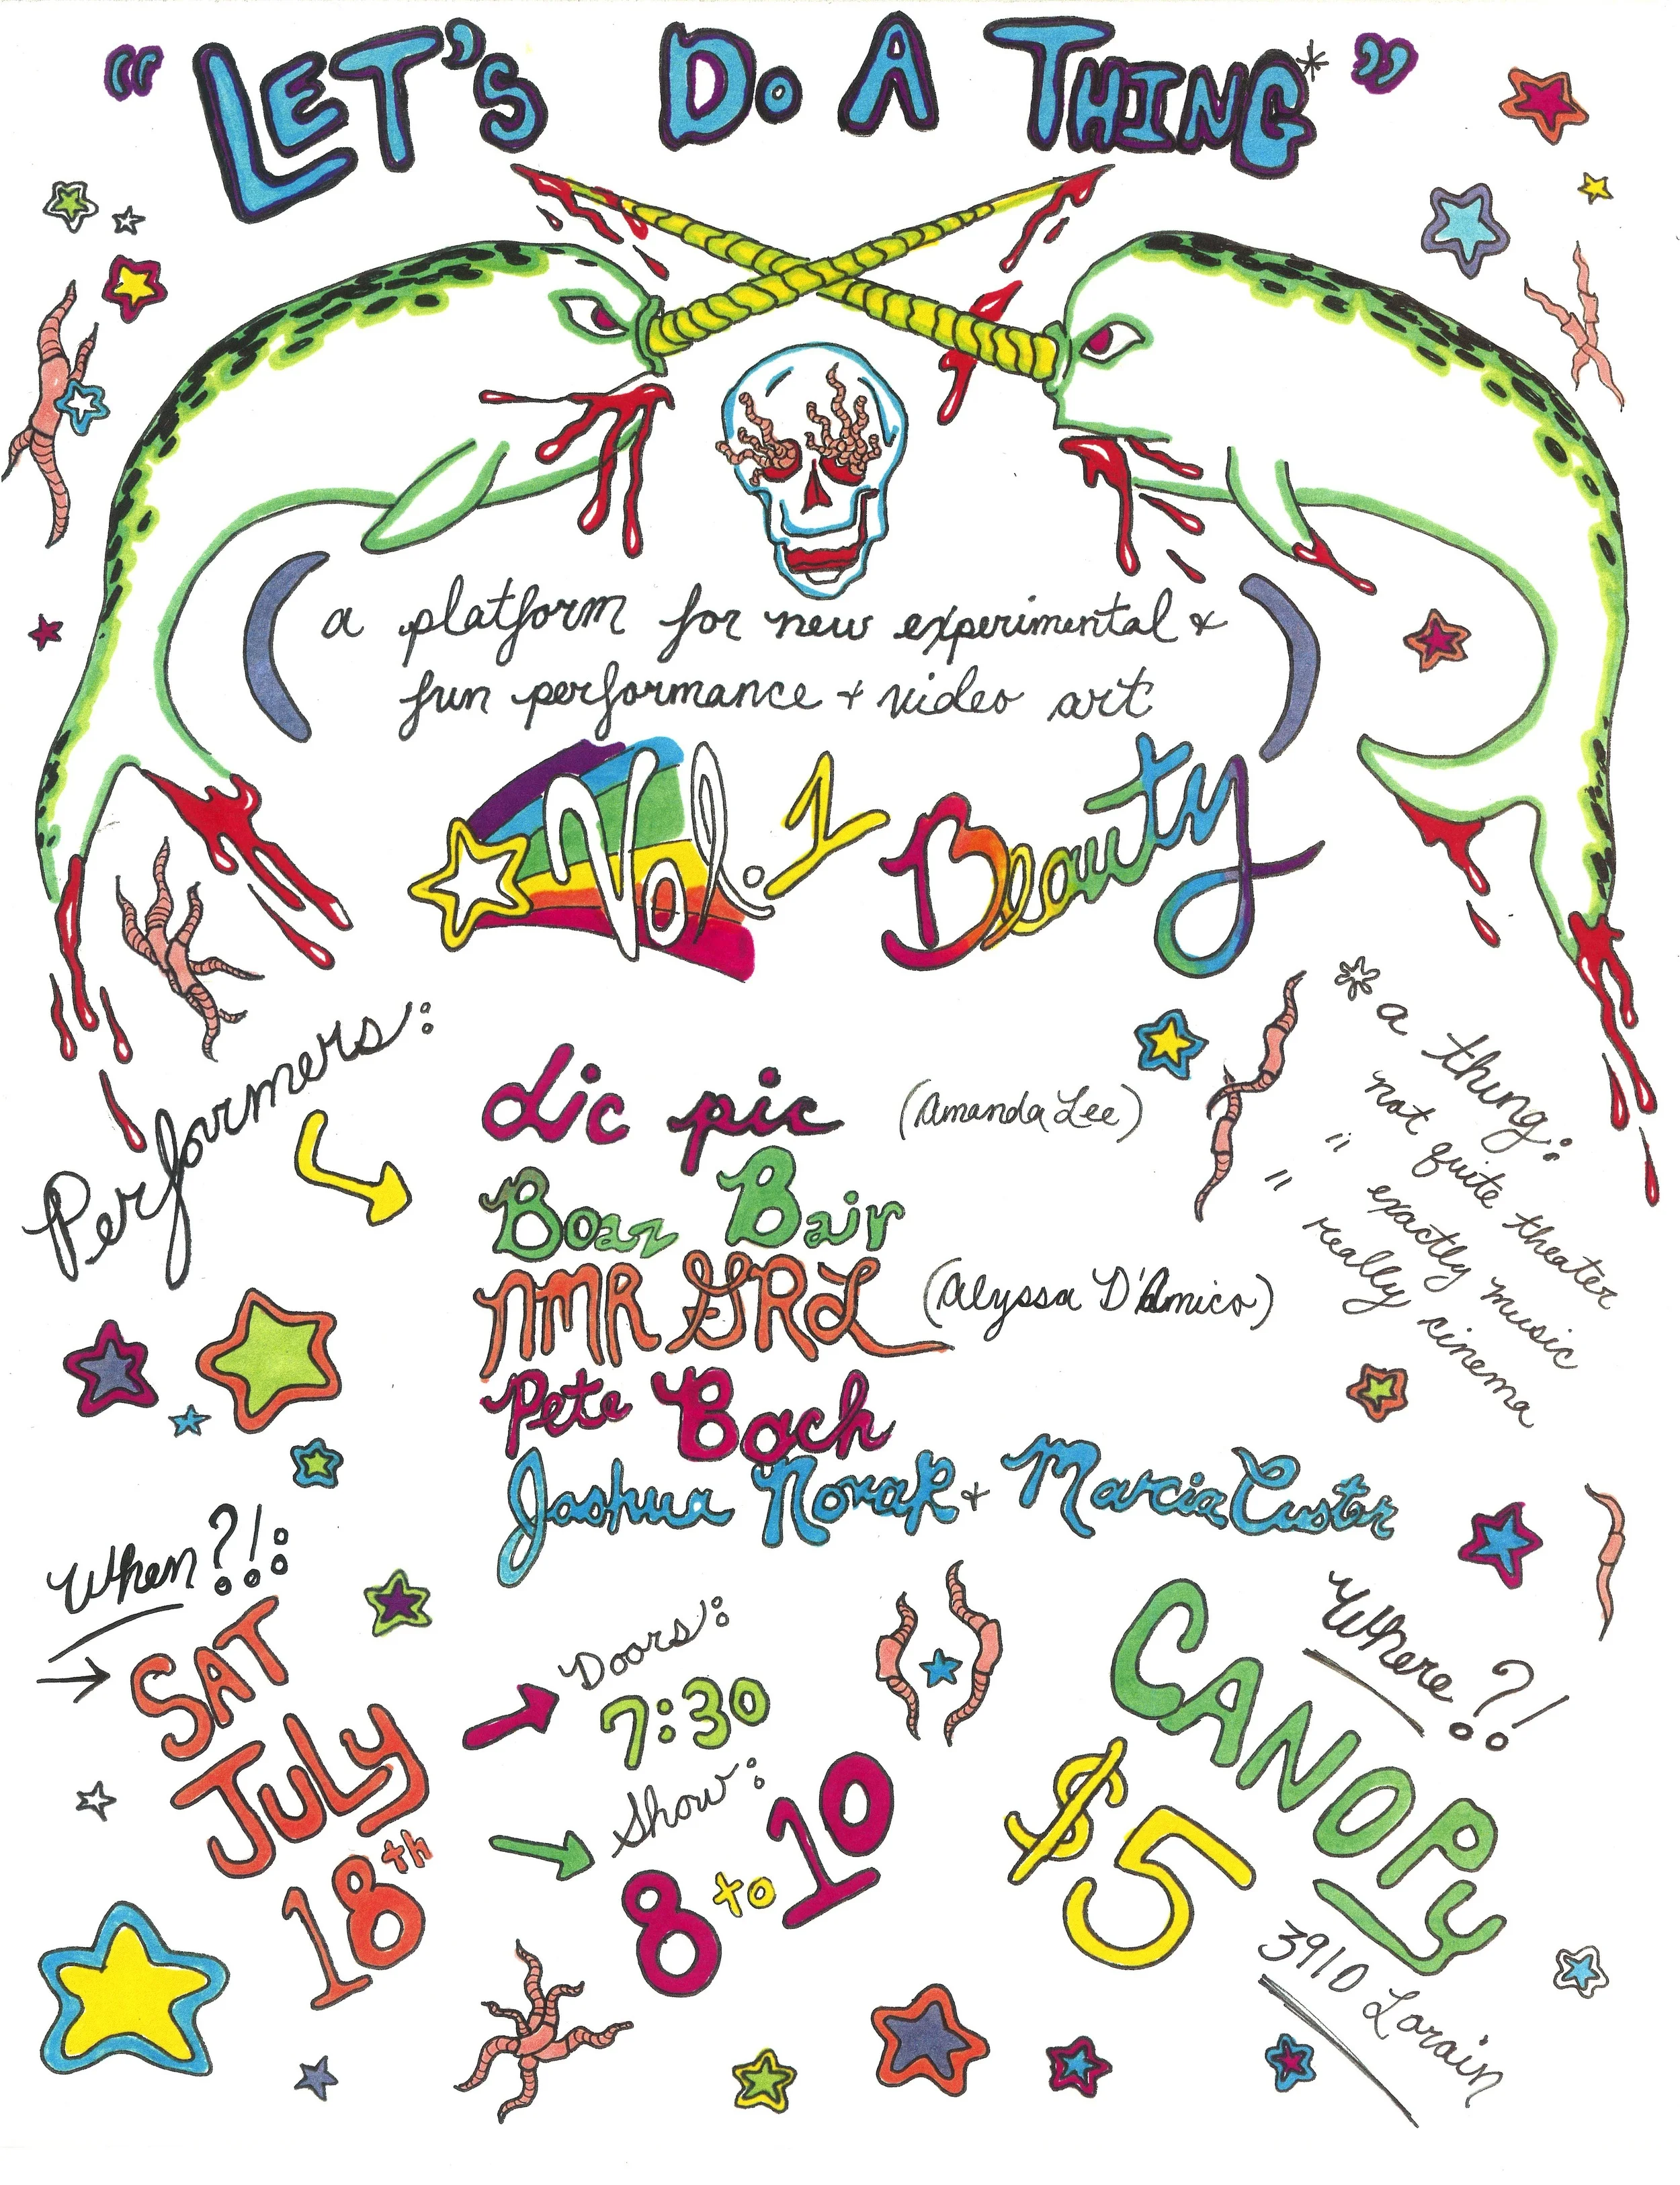 "LET'S DO A THING*"
(a platform for new experimental &
fun performance + video art)
Vol. 1 Beauty
Performers:
Lic pic (Amanda Lee)
Boaz Bair
NMR GRL (Alyssa D'Amico)
Pete Bach
Joshua Novak + Marcia Custer
* a thing:
not quite theater
" " exactly music
" really cinema
When?!:
SAT
July
18th
Doors:
7:30
Show:
8 to 10
Where?!
CANOPy
$5
3910 Lorain